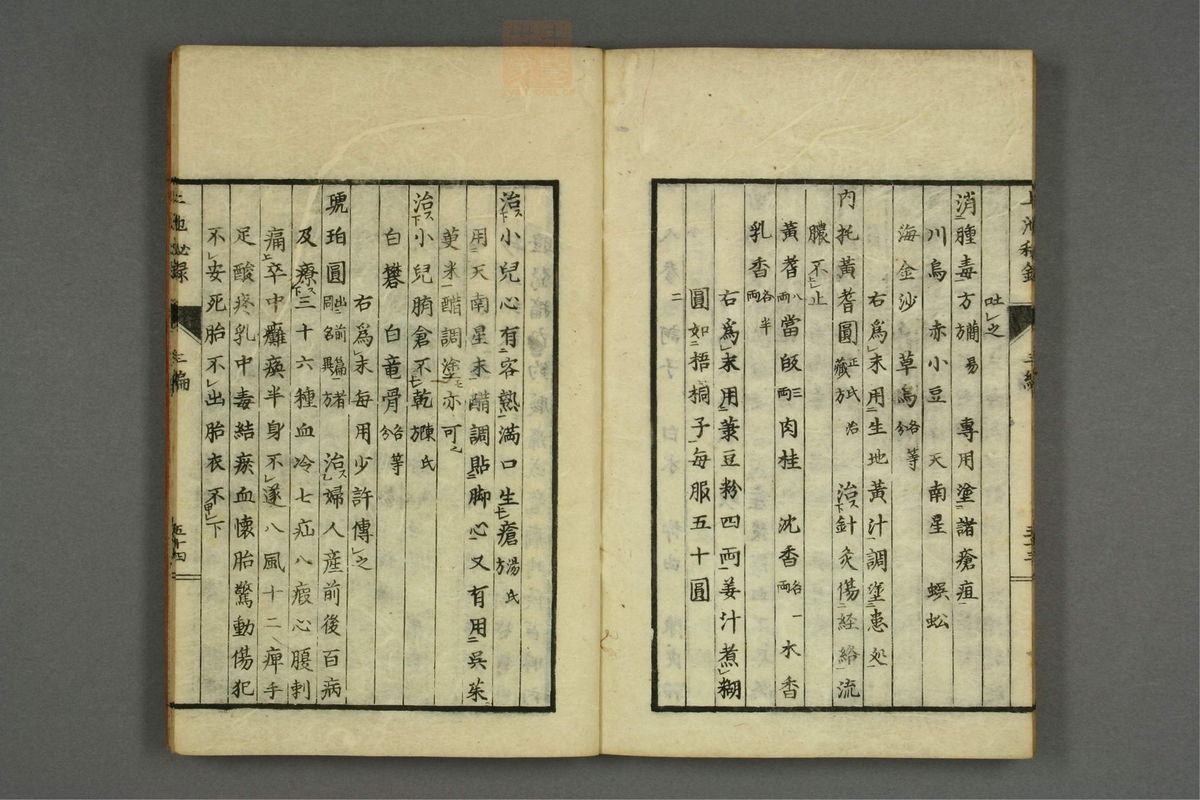 吐之
消腫毒方 簡易 專用塗諸瘡疽
川烏 赤小豆 天南星 蜈蚣
海金沙 草烏各等分
右為末用生地黃汁調塗患処
內托黃耆圓 治針灸傷経絡流
膿不止
黃耆八両 當皈三両 肉桂 沈香各一両 木香
乳香各半両
右為末用菉豆粉四両姜汁煮糊
圓如梧桐子每服五十圓
治小兒心有客熱滿口生瘡 湯氏方
用天南星末醋調貼脚心又有用吳茱
萸末醋調塗亦可
治小兒臍瘡不乾 陳氏方
白礬 白竜骨各等分
右為末每用少許傅之
琥珀圓 出前篇同名異方者 治婦人産前後百病
及療三十六種血冷七疝八瘕心腹刺
痛卒中癱瘓半身不遂八風十二痺手
足酸疼乳中毒結瘀血懷胎驚動傷犯
不安死胎不出胎衣不下